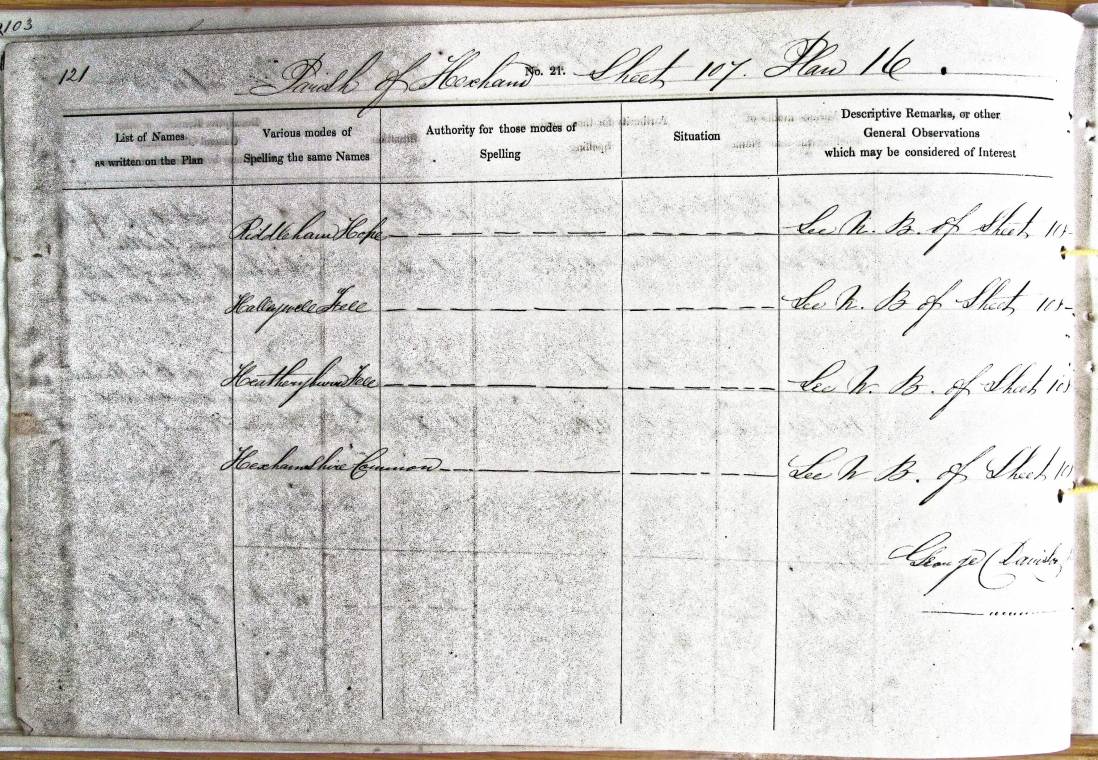 103
121
Parish of Hexham No. 21. Sheet 107. Plan 16.
List of Names
as written on the Plan
Various modes of
Spelling the same Names
Authority for those modes of
Spelling
Situation
Descriptive Remarks, or other
General Observations
which may be considered of Interest
Riddleham Hope See N. B. of Sheet 10
Halleywell Fell See N. B of Sheet 10
Heatheryburn Fell See N. B. of Sheet 10
Hexhamshire Common See N B. of Sheet 10
George